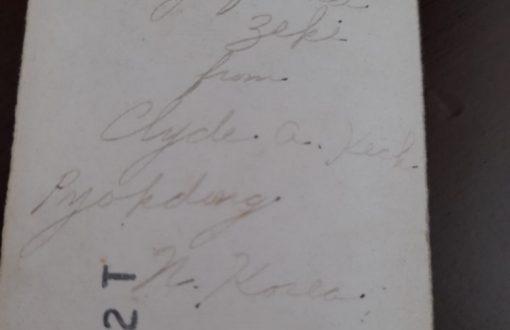 Zeki
from
Clyde. A. Keck
Pyokdong
N. Korea.
2T